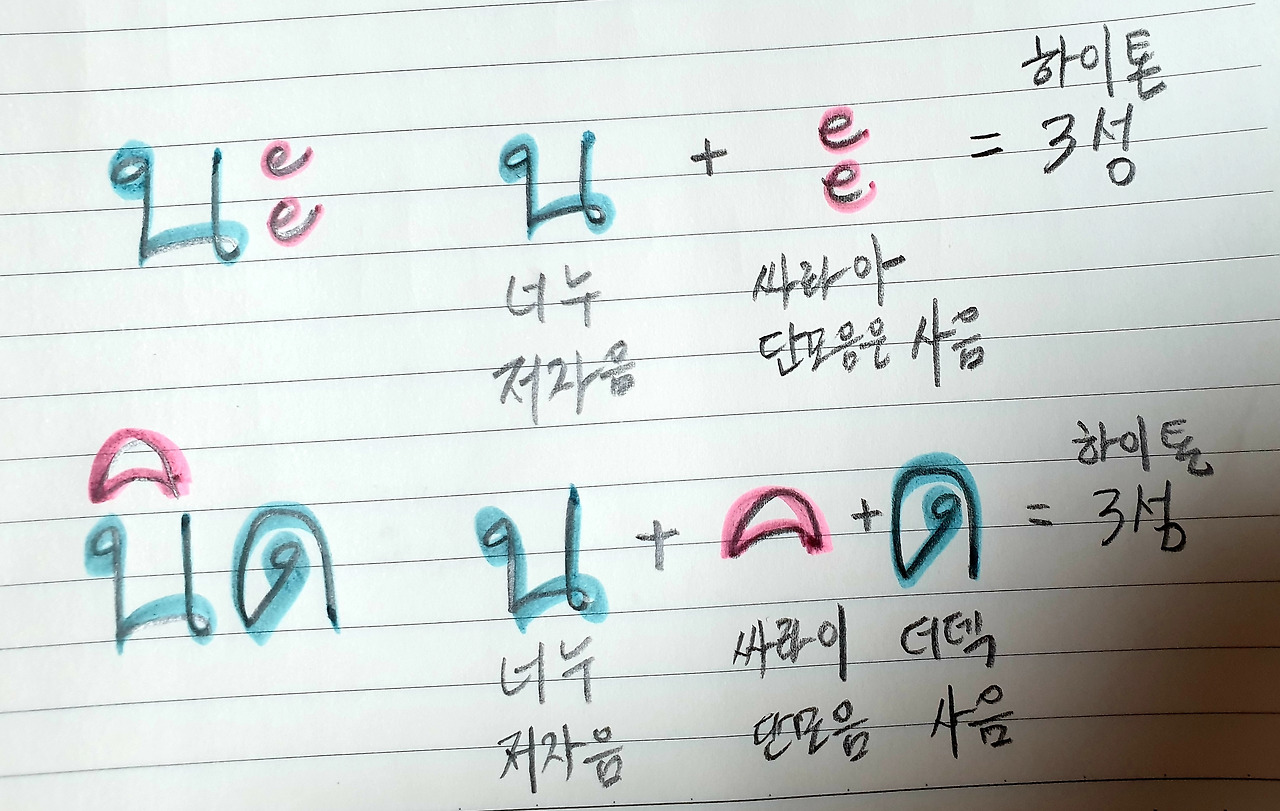 นะ น + ะ = 하이톤 3성
너누 싸라아
저자음 단모음은 사음
นิด น + ิ + ด = 하이톤 3성
너누 싸라이 더덱
저자음 단모음 사음